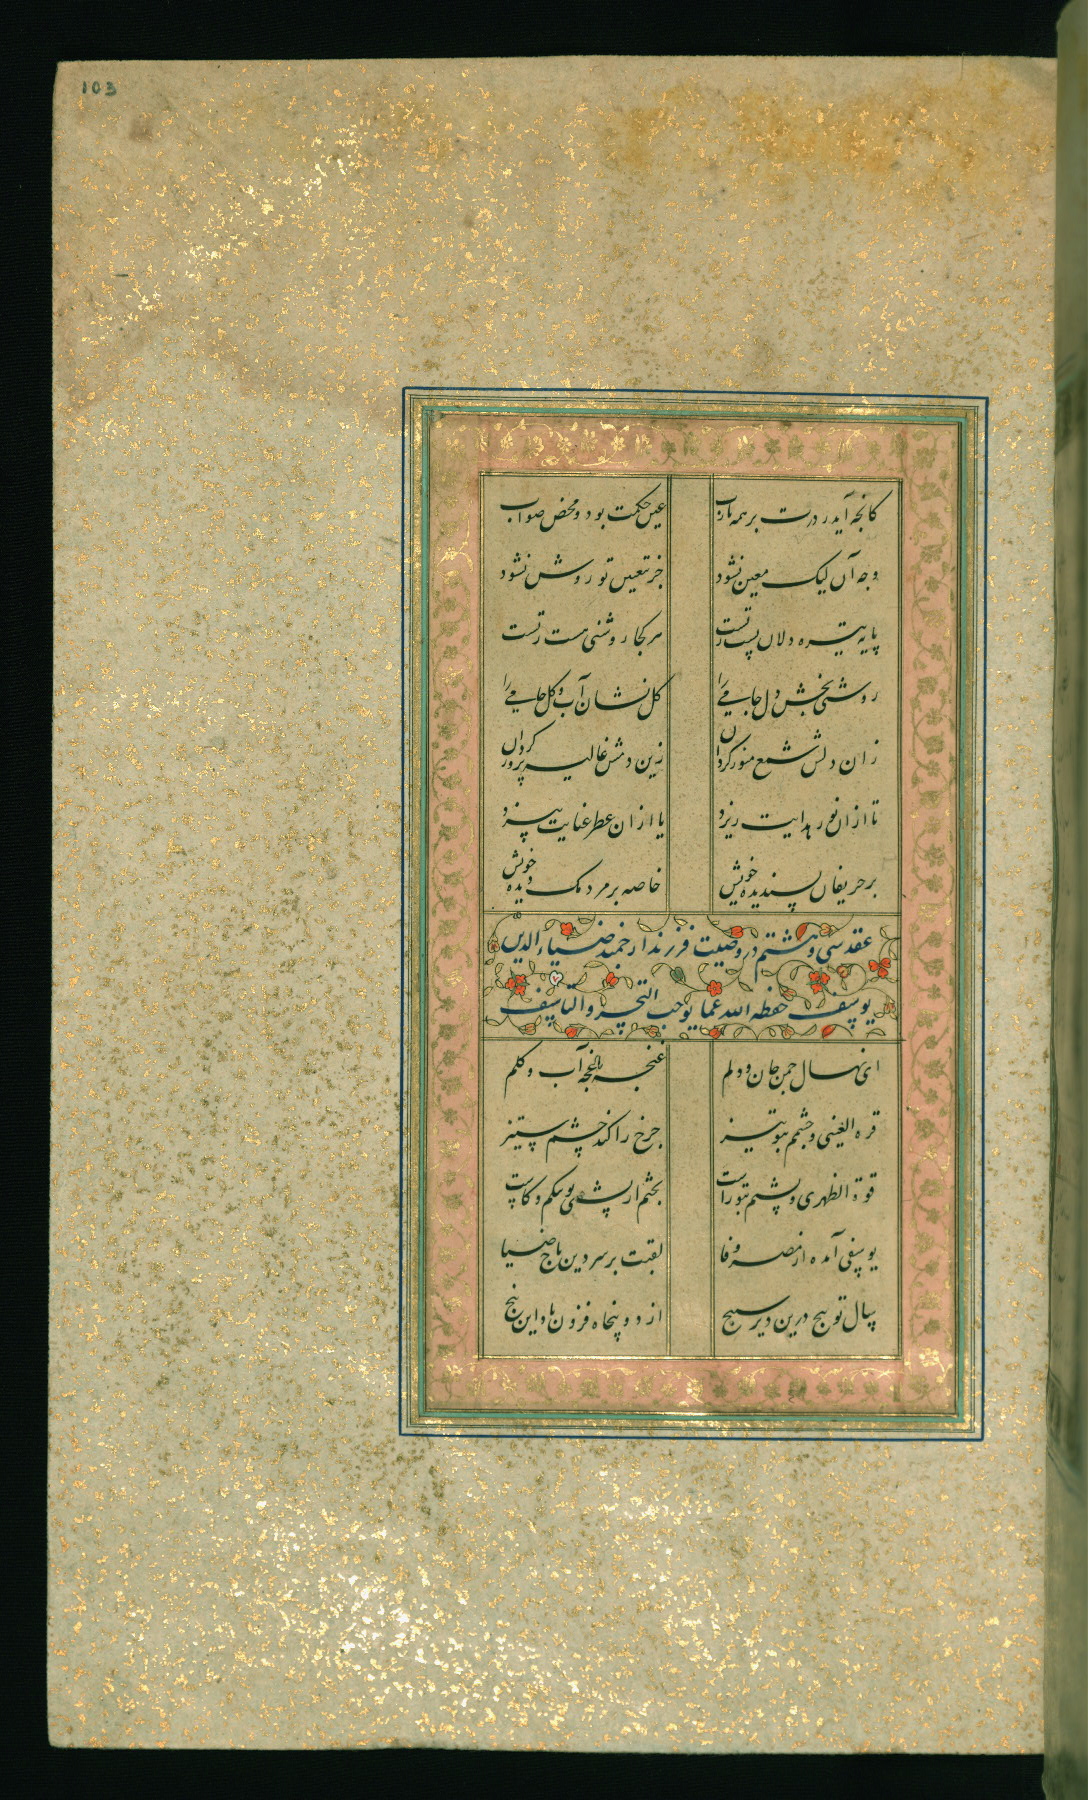 103
کانچه آید ز درت بر همه باب عین حکمت بود و محض صواب
وجه آن لیک معین نشود جز بتعیین تو روشن نشود
پایه تیره دلان پست ز تست هر کجا روشنی هست ز تست
روشنی بخش دل جامی را گل نشان آب و گل جامی را
زان دلش شمع منور گردان زین دمش غالیه پرور گردان
تا از آن نور هدایت ریزد یا از آن عطر عنایت بیزد
بر حریفان پسندیده خویش خاصه بر مردمک دیده خویش
عقد سی و هشتم در وصیت فرزند ارجمند ضیاء الدین
یوسف حفظه الله عما یوجب التحسر و التاسف
ای نهال چمن جان و دلم غنچه باغچه آب و گلم
قرة العینی و چشمم بتو تیز چرخ را کند ز چشم ستیز
قوة الظهری و پشتم بتو راست پشتی
یوسفی آمده از مصر وفا لقبت بر سر دین تاج ضیا
سال تو پنج درین دیر سپنج از دو پنجاه فزون باد این پنج